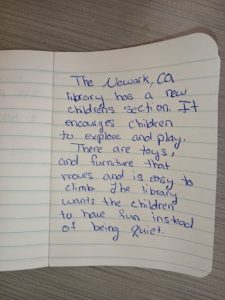 The Newark, CA
library has a new
childrens section. It
encourges children
to explore and play.
There are toys,
and furniture that
moves and is easy to
climb. The library
wants the children
to have fun instead
of being quiet.